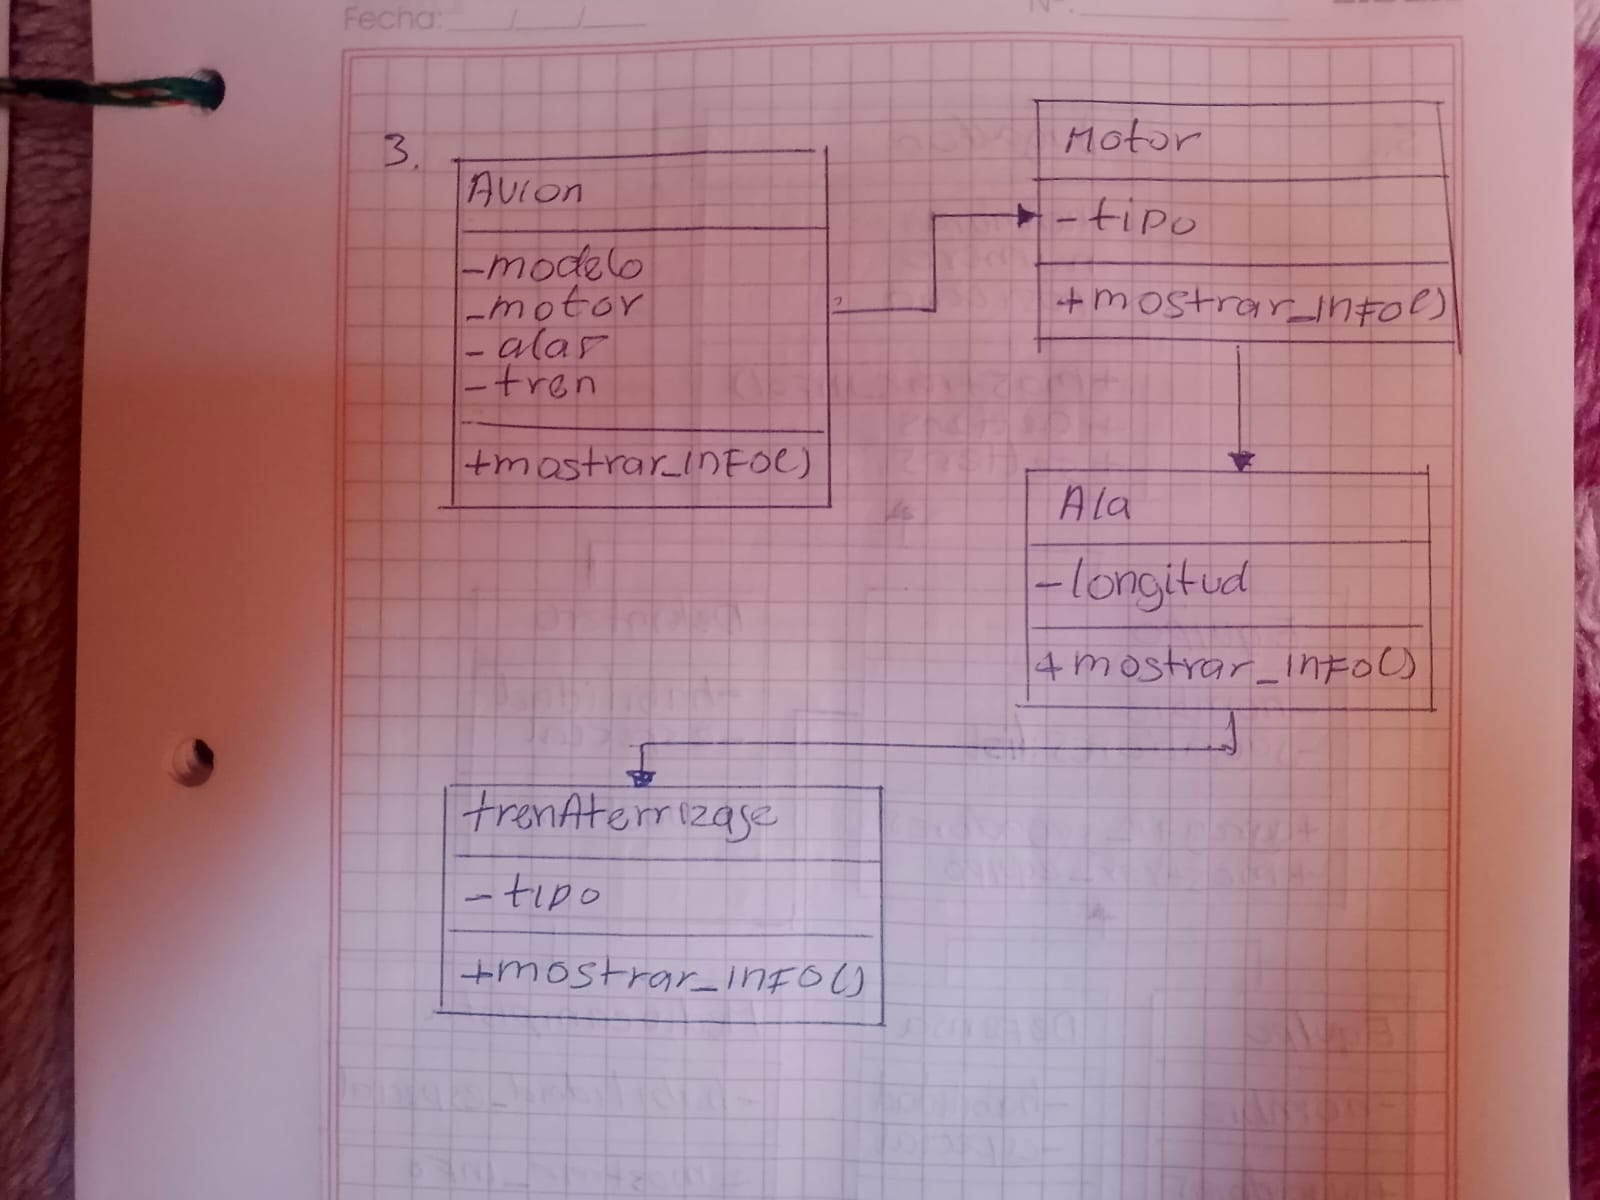 Fecha:
3.
Avion
-modelo
-motor
-alas
-tren
+mostrar_info()
Motor
-tipo
+mostrar_info()
Ala
-longitud
+mostrar_info()
trenAterrizaje
-tipo
+mostrar_info()